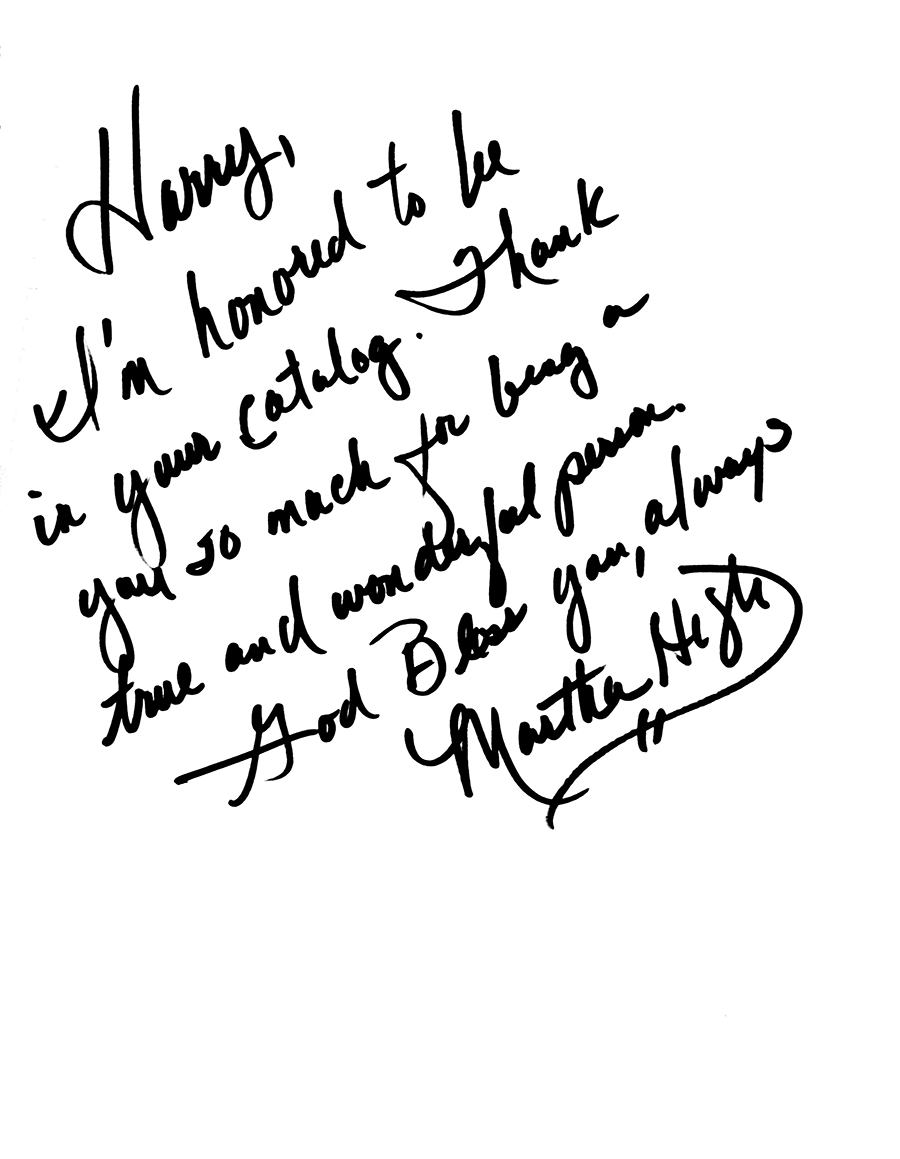 Harry,
I'm honored to be
in your catalog. Thank
you so much for being a
true and wonderful person.
God Bless you, always
Martha High